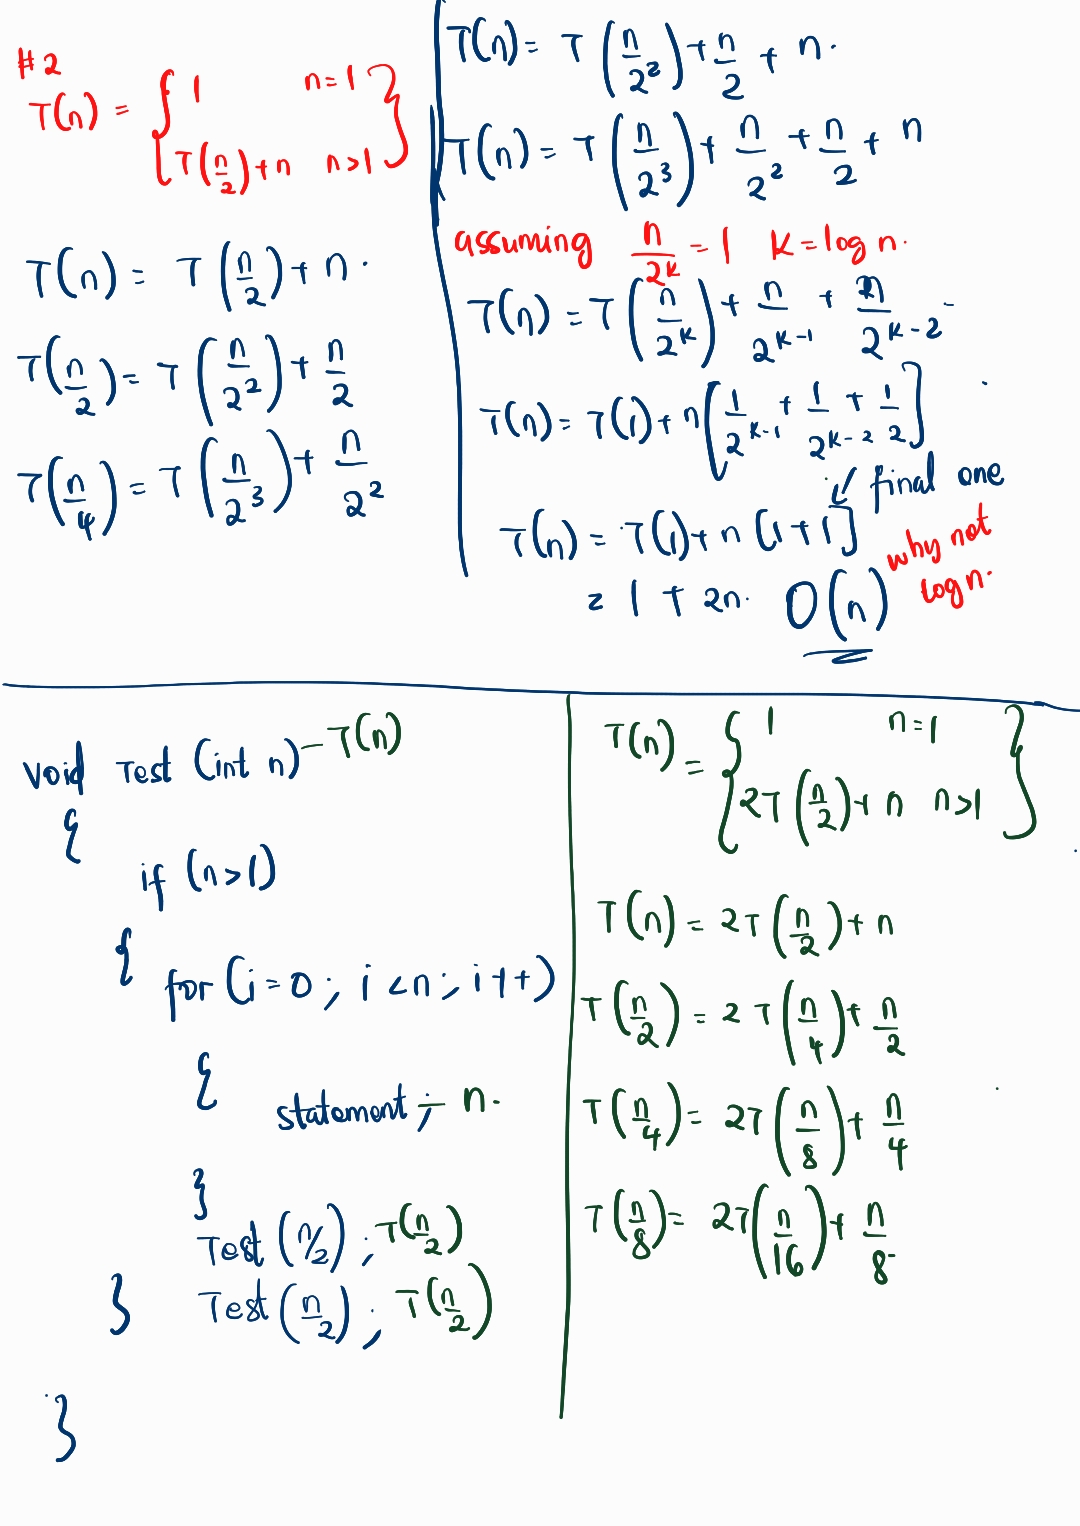 #2
T(n) = { 1 n=1
T(n/2)+n n>1 }
T(n) = T(n/2)+ n.
T(n/2) = T(n/2²)+ n/2
T(n/4) = T(n/2³)+ n/2²
T(n) = T(n/2²)+n/2 + n.
T(n) = T(n/2³)+ n/2² + n/2 + n
assuming n/2^k = 1 k=log n.
T(n) = T(n/2^k) + n/2^(k-1) + n/2^(k-2) -
T(n) = T(1)+ n[1/2^(k-1) + 1/2^(k-2) + 1/2]
final one
T(n) = T(1)+ n [1+1]
why not
log n.
= 1 + 2n. O(n)
void Test (int n) - T(n)
{
if (n>1)
{
for (i=0; i<n; i++)
{
statement; - n.
}
Test (n/2); T(n/2)
} Test (n/2); T(n/2)
}
T(n) = { 1 n=1
2T(n/2)+ n n>1 }
T(n) = 2T(n/2)+ n
T(n/2) = 2T(n/4)+ n/2
T(n/4) = 2T(n/8)+ n/4
T(n/8) = 2T(n/16)+ n/8